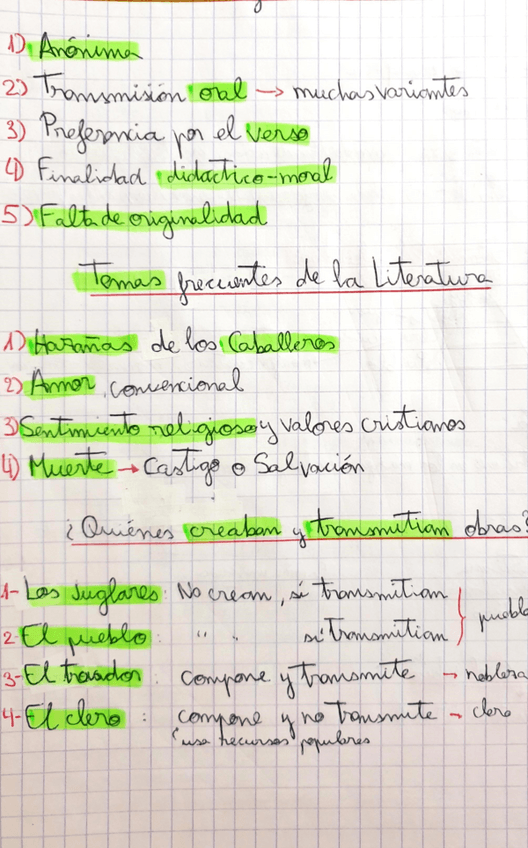 1) Anónima
2) Transmisión oral → muchas variantes
3) Preferencia por el verso
4) Finalidad didáctico-moral
5) Falta de originalidad
Temas frecuentes de la Literatura
1) Hazañas de los Caballeros
2) Amor convencional
3) Sentimiento religioso y valores cristianos
4) Muerte → Castigo o Salvación
¿Quiénes creaban y transmitian obras?
1- Los Juglares: No crean, sí transmitian
2- El pueblo: " " sí transmitian } pueblo
3- El trovador: compone y transmite → nobleza
4- El clero: compone y no transmite → clero
usa recursos populares